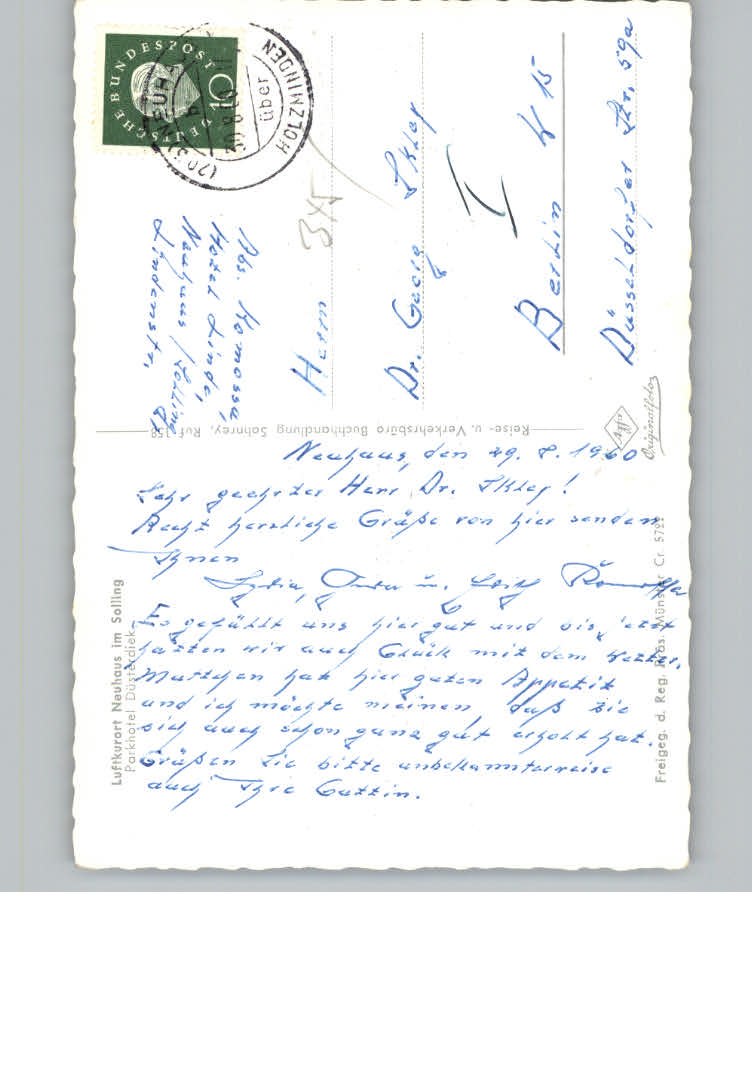 DEUTSCHE BUNDESPOST
10
HOLZMINDEN
über
Abs. Komossa,
Hotel Linde,
Neuhaus / Solling
Lindenstr.
Herrn
Dr. Georg
Berlin W 15
Düsseldorfer Str. 59a
3x5
Reise- u. Verkehrsbüro Buchhandlung Sohnrey, Ruf 158
Agfa
Originalfoto
Neuhaus, den 29. 8. 1960
Sehr geehrter Herr Dr.
Recht herzliche Grüße von hier senden
Ihnen
Lydia, u. Edith
Es gefällt uns hier gut und bis jetzt
hatten wir auch Glück mit dem Wetter.
Muttchen hat hier guten Appetit
und ich möchte meinen, daß sie
sich auch schon ganz gut erholt hat.
Grüßen Sie bitte unbekannterweise
auch Ihre Gattin.
Luftkurort Neuhaus im Solling
Parkhotel Düsterdiek
Freigeg. d. Reg. Präs. Münster Cr.